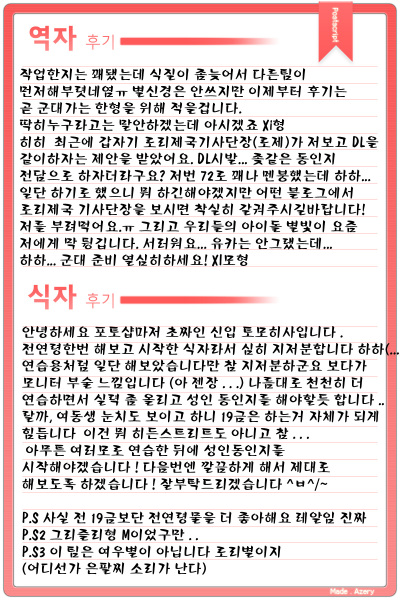 Postscript
역자 후기
작업한지는 꽤됐는데 식질이 좀늦어서 다른팀이
먼저해부덧네옆ㅠ 별신경은 안쓰지만 이제부터 후기는
곧 군대가는 한형을 위해 적을겁니다.
딱히누구라고는 말안하겠는데 아시겠죠 Xi형
히히 최근에 갑자기 로리제국기사단장(로제)가 저보고 DL을
같이하자는 제안을 받았어요. DL시발... 좆같은 동인지
전담으로 하자더라구요? 저번 72로 꽤나 멘붕했는데 하하...
일단 하기로 했으니 뭐 하긴해야겠지만 어떤 블로그에서
로리제국 기사단장을 보시면 착실히 갈궈주시길바랍니다!
저를 부려먹어요.ㅠ 그리고 우리들의 아이돌 별빛이 요즘
저에게 막 튕깁니다. 서러워요... 유카는 안그랬는데...
하하... 군대 준비 열심히하세요! XI모형
식자 후기
안녕하세요 포토샵마저 초짜인 신입 토모히사입니다 .
전연령한번 해보고 시작한 식자라서 심히 지저분합니다 하하(...
연습용처럼 일단 해보았습니다만 참 지저분하군요 보다가
모니터 부술 느낌입니다 (아 젠장 . . .) 나름대로 천천히 더
연습하면서 실력 좀 올리고 성인 동인지를 해야할듯 합니다 ..
달까, 여동생 눈치도 보이고 하니 19금은 하는거 자체가 되게
힘듭니다 이건 뭐 히든스트리트도 아니고 참 . . .
아무튼 여러모로 연습한 뒤에 성인동인지를
시작해야겠습니다 ! 다음번엔 깔끔하게 해서 제대로
해보도록 하겠습니다 ! 잘부탁드리겠습니다 ^ㅂ^/~
P.S 사실 전 19금보단 전연령물을 더 좋아해요 레알임 진짜
P.S2 그리졸리형 M이었구만 . .
P.S3 이 팀은 여우별이 아닙니다 로리별이지
(어디선가 은팔찌 소리가 난다)
Made . Azery